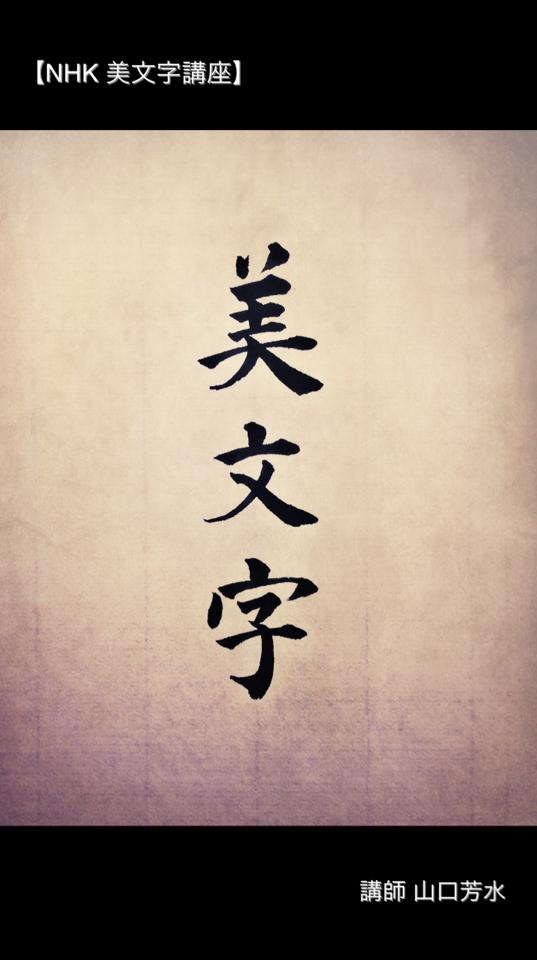 【NHK 美文字講座】
美文字
講師 山口芳水